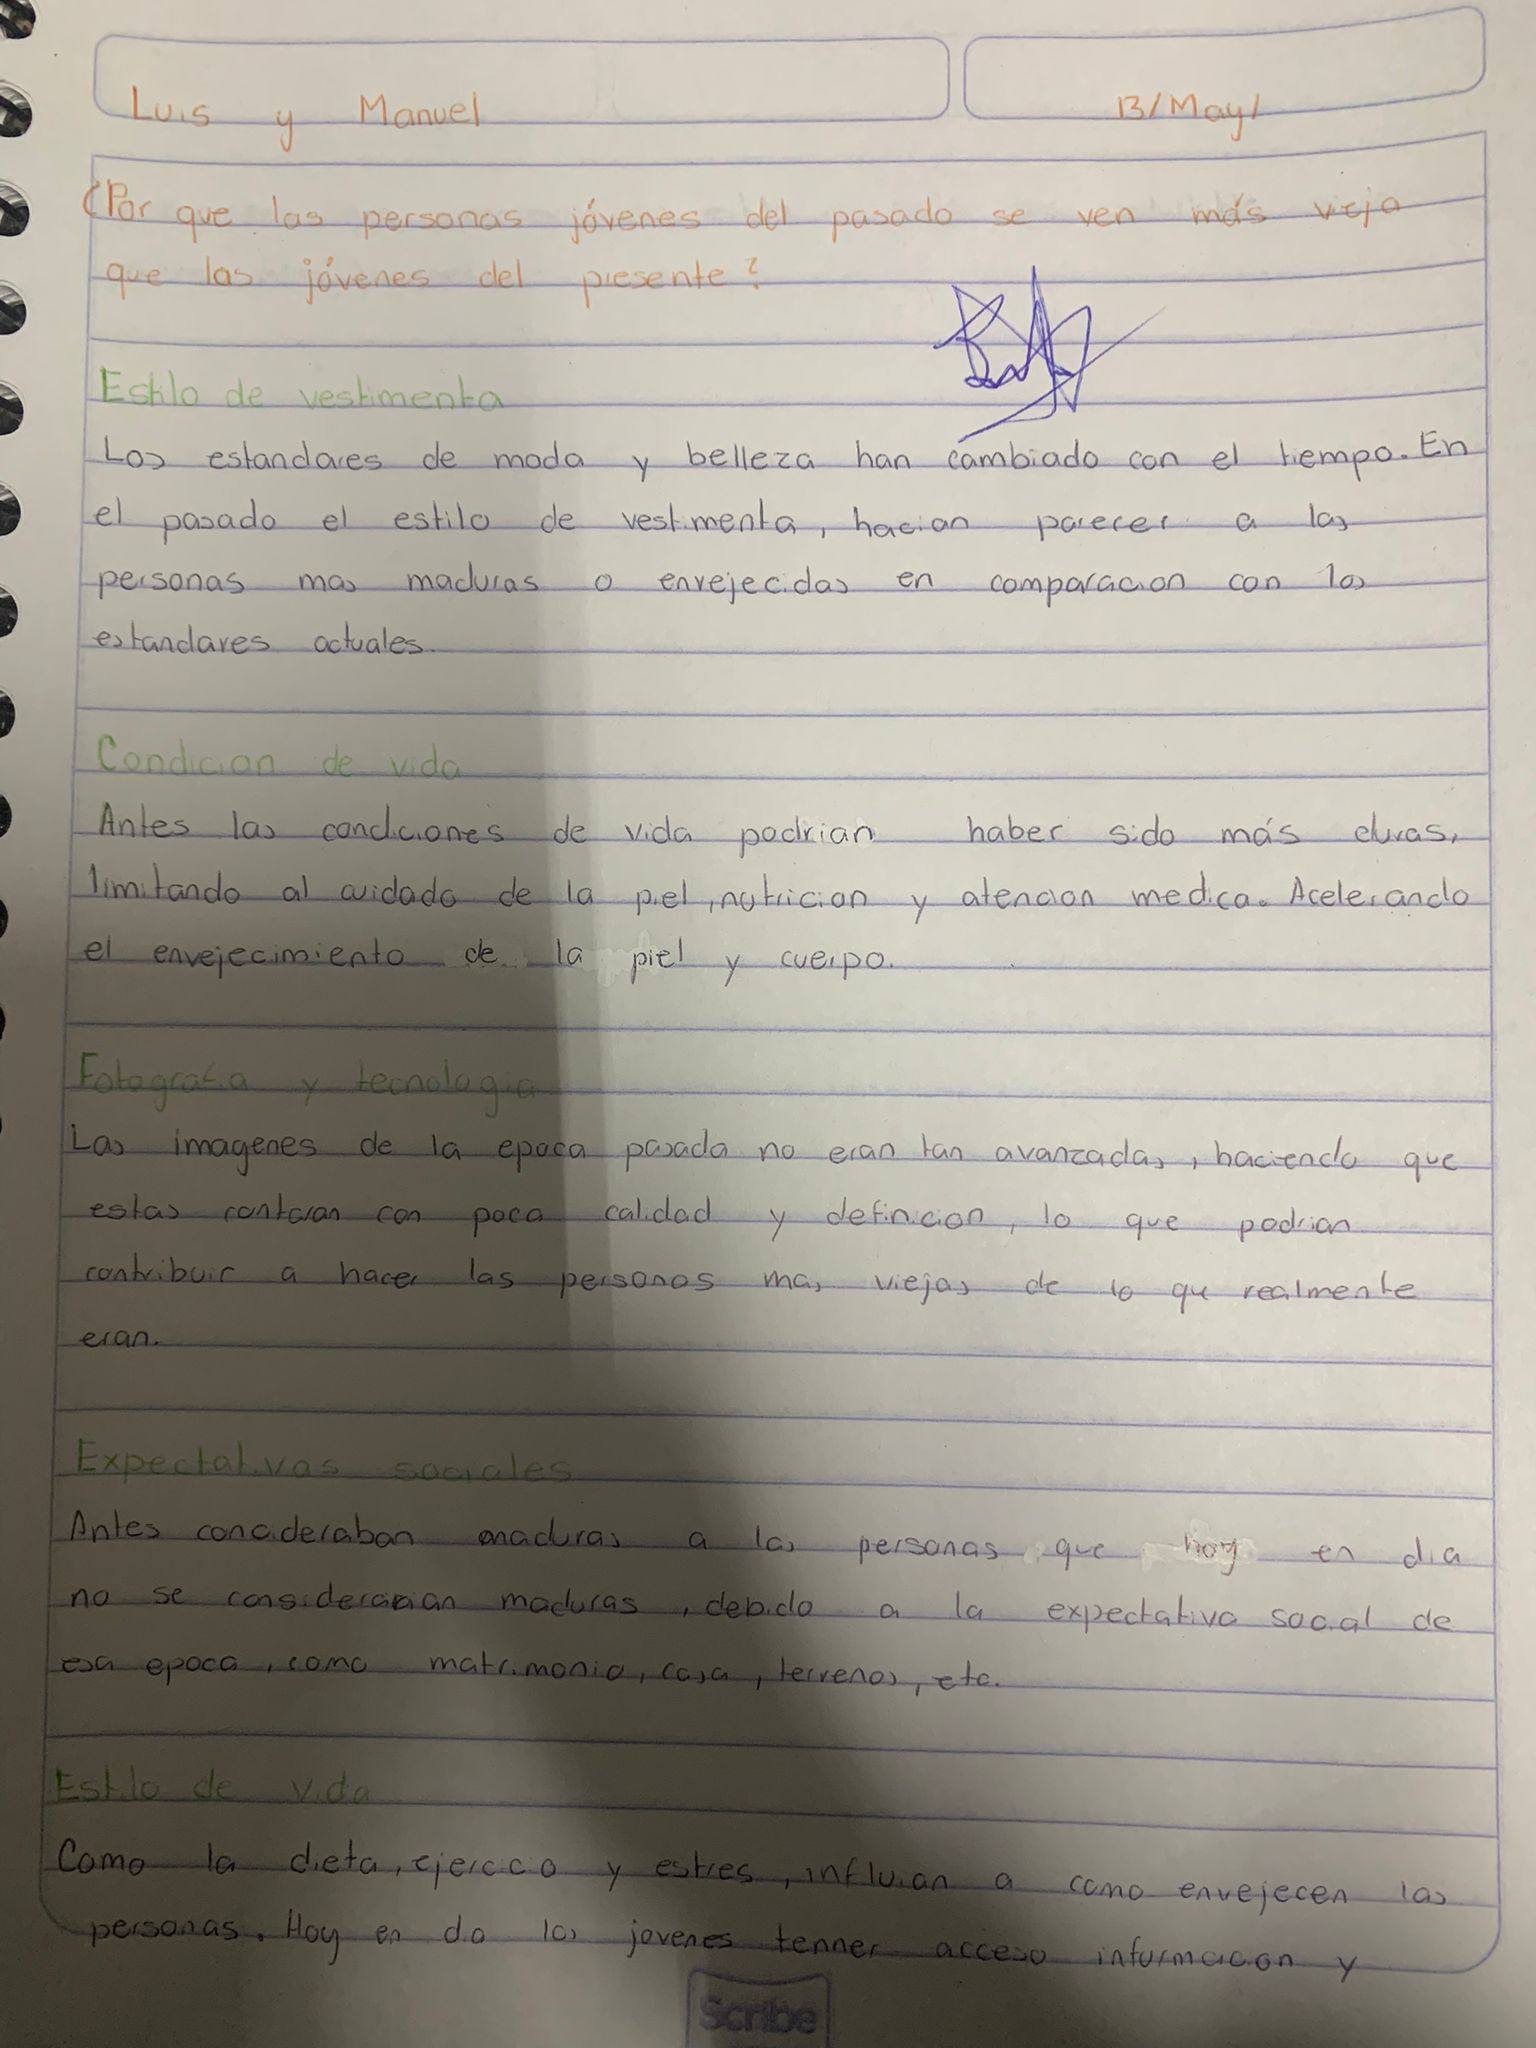 Luis y Manuel
13/May/
¿Por que las personas jóvenes del pasado se ven más vieja
que las jóvenes del presente?
Estilo de vestimenta
Los estandares de moda y belleza han cambiado con el tiempo. En
el pasado el estilo de vestimenta, hacian parecer a las
personas mas maduras o envejecidas en comparacion con los
estandares actuales.
Condicion de vida
Antes las condiciones de vida podrian haber sido más duras,
limitando al cuidado de la piel, nutricion y atencion medica. Acelerando
el envejecimiento de la piel y cuerpo.
Fotografia y tecnologia
Las imagenes de la epoca pasada no eran tan avanzadas, haciendo que
estas contaran con poca calidad y definicion, lo que podrian
contribuir a hacer las personas mas viejas de lo que realmente
eran.
Expectativas sociales
Antes concideraban maduras a las personas que hoy en dia
no se considerarian maduras, debido a la expectativa social de
esa epoca, como matrimonio, casa, terrenos, etc.
Estilo de vida
Como la dieta, ejercicio y estres, influian a como envejecen las
personas. Hoy en dia los jovenes tenner acceso informacion y
Scribe